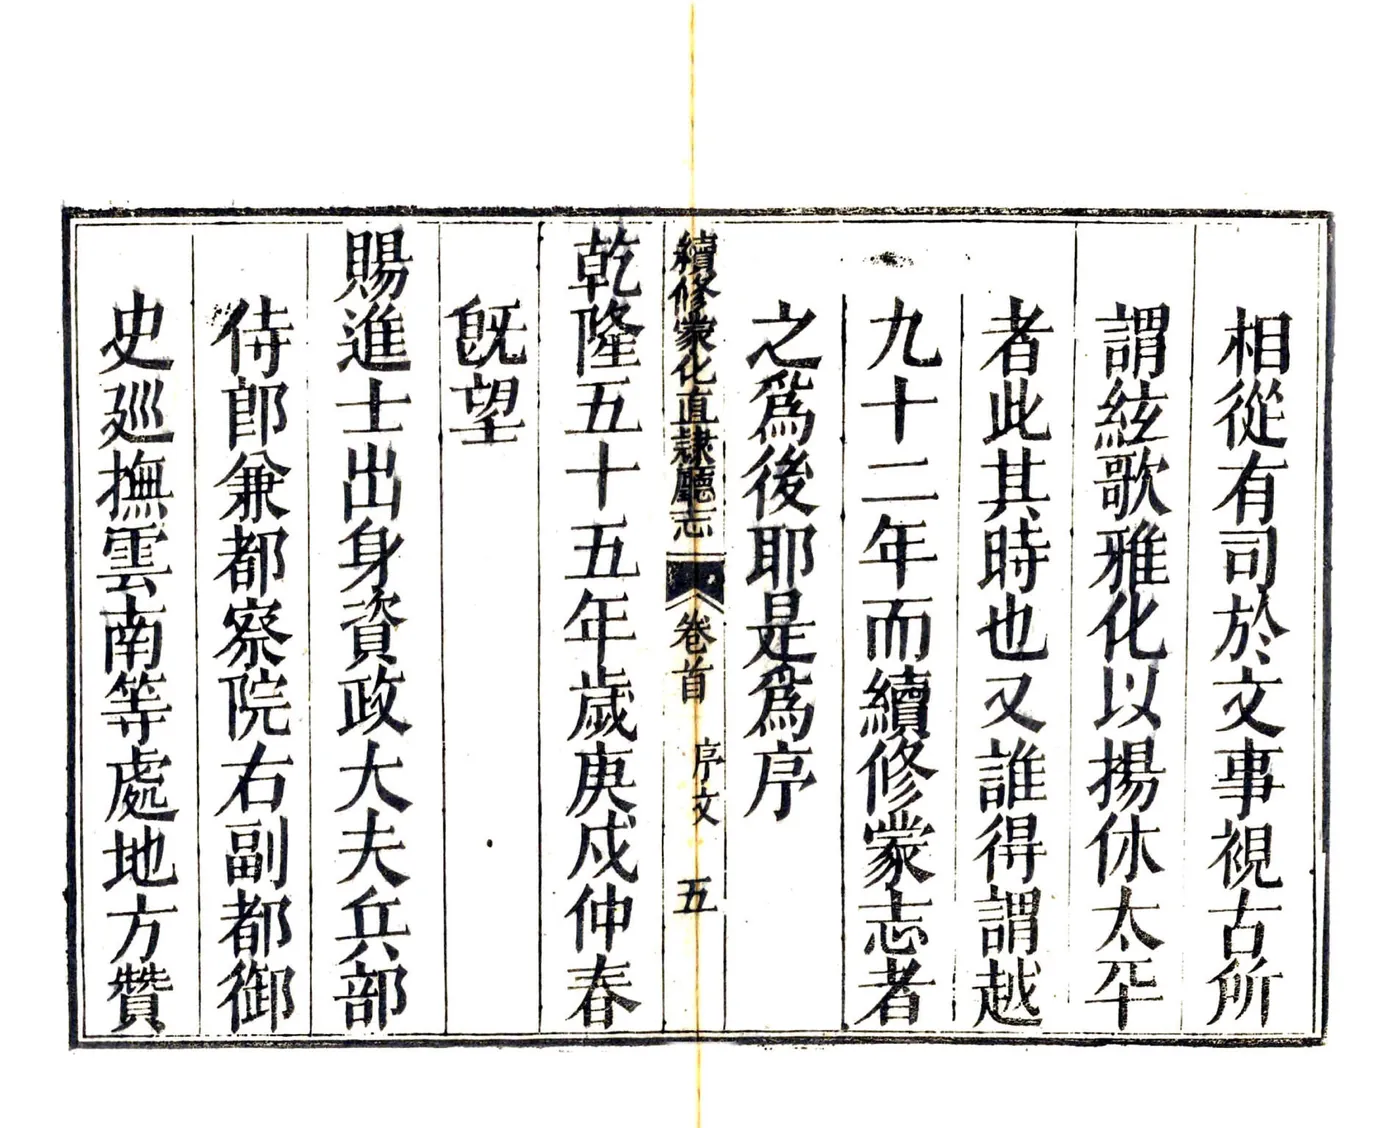 相從有司於文事視古所
謂絃歌雅化以揚休太平
者此其時也又誰得謂越
九十二年而續修蒙志者
之爲後耶是爲序
續修蒙化直隸廳志 卷首 序文 五
乾隆五十五年歲庚戌仲春
旣望
賜進士出身資政大夫兵部
侍郎兼都察院右副都御
史巡撫雲南等處地方贊